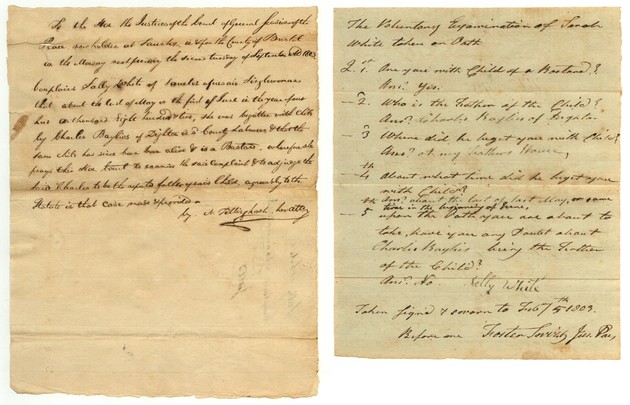 To the Hon the Justices of the Court of General Sessions of the
Peace now holden at Taunton within & for the County of Bristol
on the Monday next preceding the second tuesday of September AD 1803
Complains Sally White of Taunton aforesaid Singlewoman
that about the last of May or the first of June in the year of our
Lord one thousand Eight hundred & two, she was begotten with Child
by Charles Baylies of Dighton in sd County Labourer & that the
same child has since been born alive & is a Bastard, wherefore she
prays this Hon Court to examine the said Complaint & to adjudge the
said Charles to be the reputed father of said Child, agreeably to the
Statute in that case made & provided
by N. Tillinghast her Atty
The Voluntary Examination of Sarah
White taken on Oath
Q. 1st Are you with Child of a Bastard?
Ansr. Yes.
2 Who is the Father of the Child?
Ansr. Charles Baylies of Dighton
3 Where did he beget you with Child?
Ansr. at my Fathers House,
4th About what time did he beget you
with Child?
Ansr. about the last of last May, or some
time in the beginning of June,
5th upon the Oath you are about to
take, have you any Doubt about
Charles Baylies being the Father
of the Child?
Ansr. No. Sally White
Taken signed & sworn to Feby 5th 1803.
Before me Foster Jus. Pac,